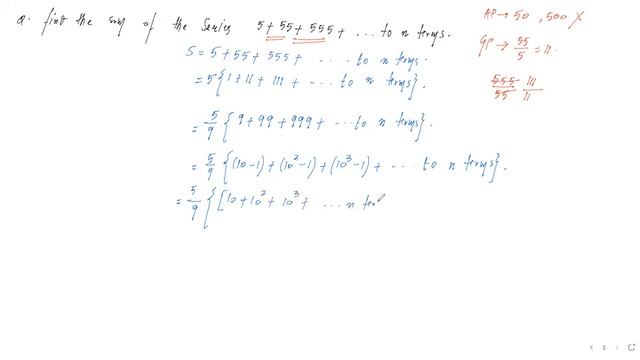 Q. find the sum of the Series 5 + 55 + 555 + ... to n terms.
S = 5 + 55 + 555 + .... to n terms.
= 5{1 + 11 + 111 + ... to n terms}.
= 5/9 {9 + 99 + 999 + ... to n terms}.
= 5/9 {(10-1) + (10²-1) + (10³-1) + ... to n terms}.
= 5/9 {[10 + 10² + 10³ + ... n ter
AP → 50, 500 X
GP → 55/5 = 11.
555/55 111/11
2